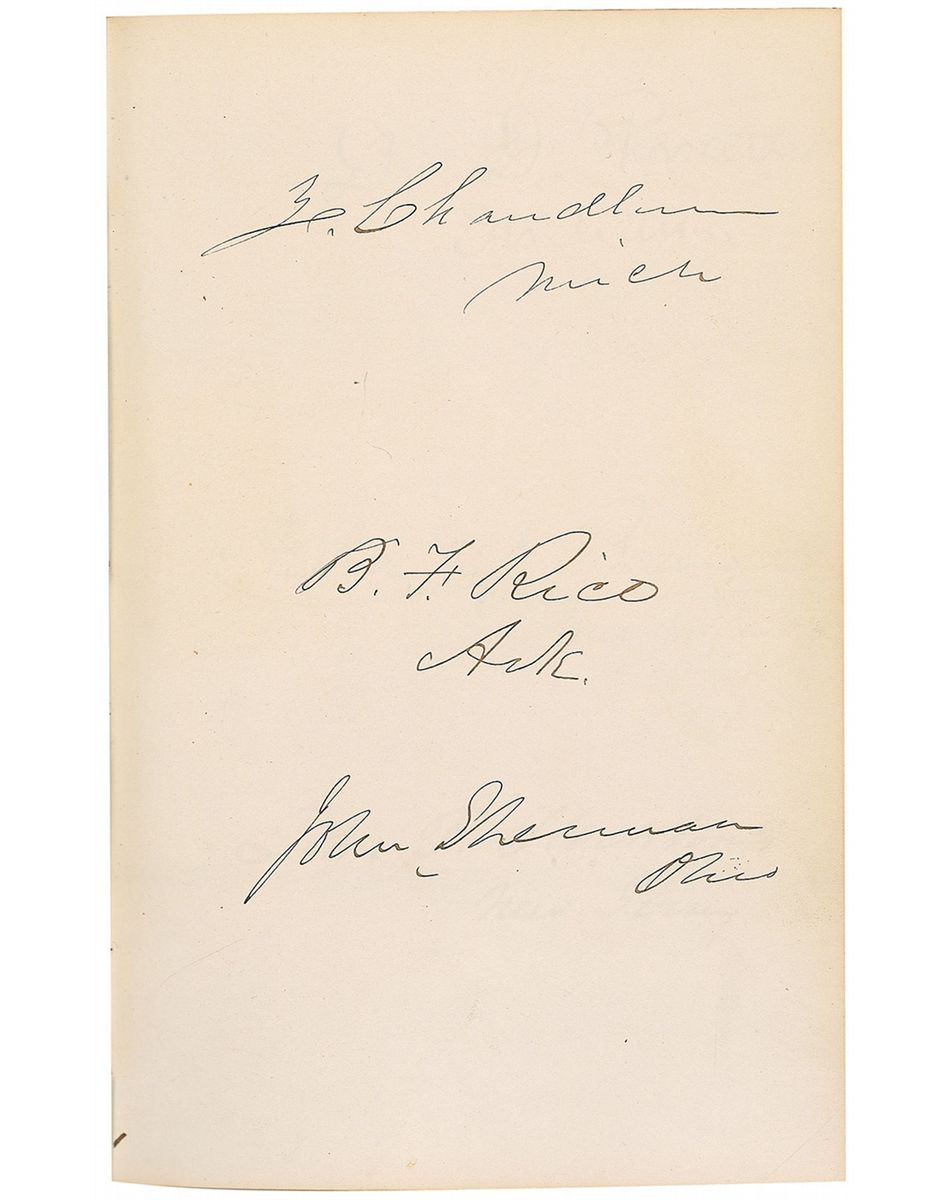 Z. Chandler
Mich
B. F. Rice
Ark.
John Sherman
Ohio